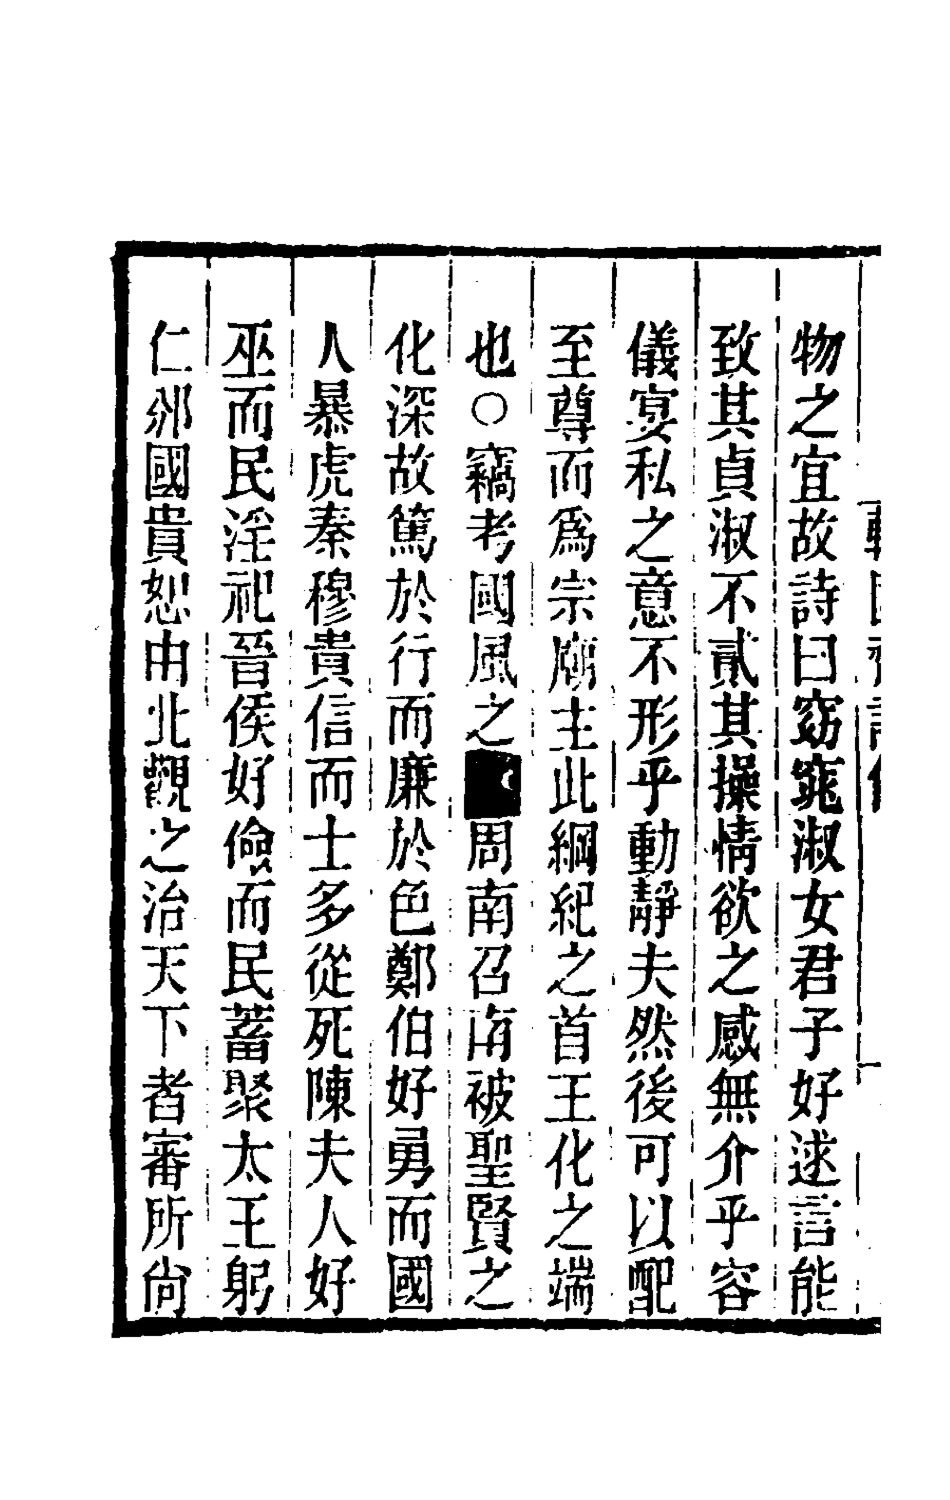 物之宜故詩曰窈窕淑女君子好逑言能
致其貞淑不貳其操情欲之感無介乎容
儀宴私之意不形乎動靜夫然後可以配
至尊而爲宗廟主此綱紀之首王化之端
也○竊考國風之■周南召南被聖賢之
化深故篤於行而廉於色鄭伯好勇而國
人暴虎秦穆貴信而士多從死陳夫人好
巫而民淫祀晉侯好儉而民蓄聚太王躬
仁邠國貴恕由此觀之治天下者審所尙